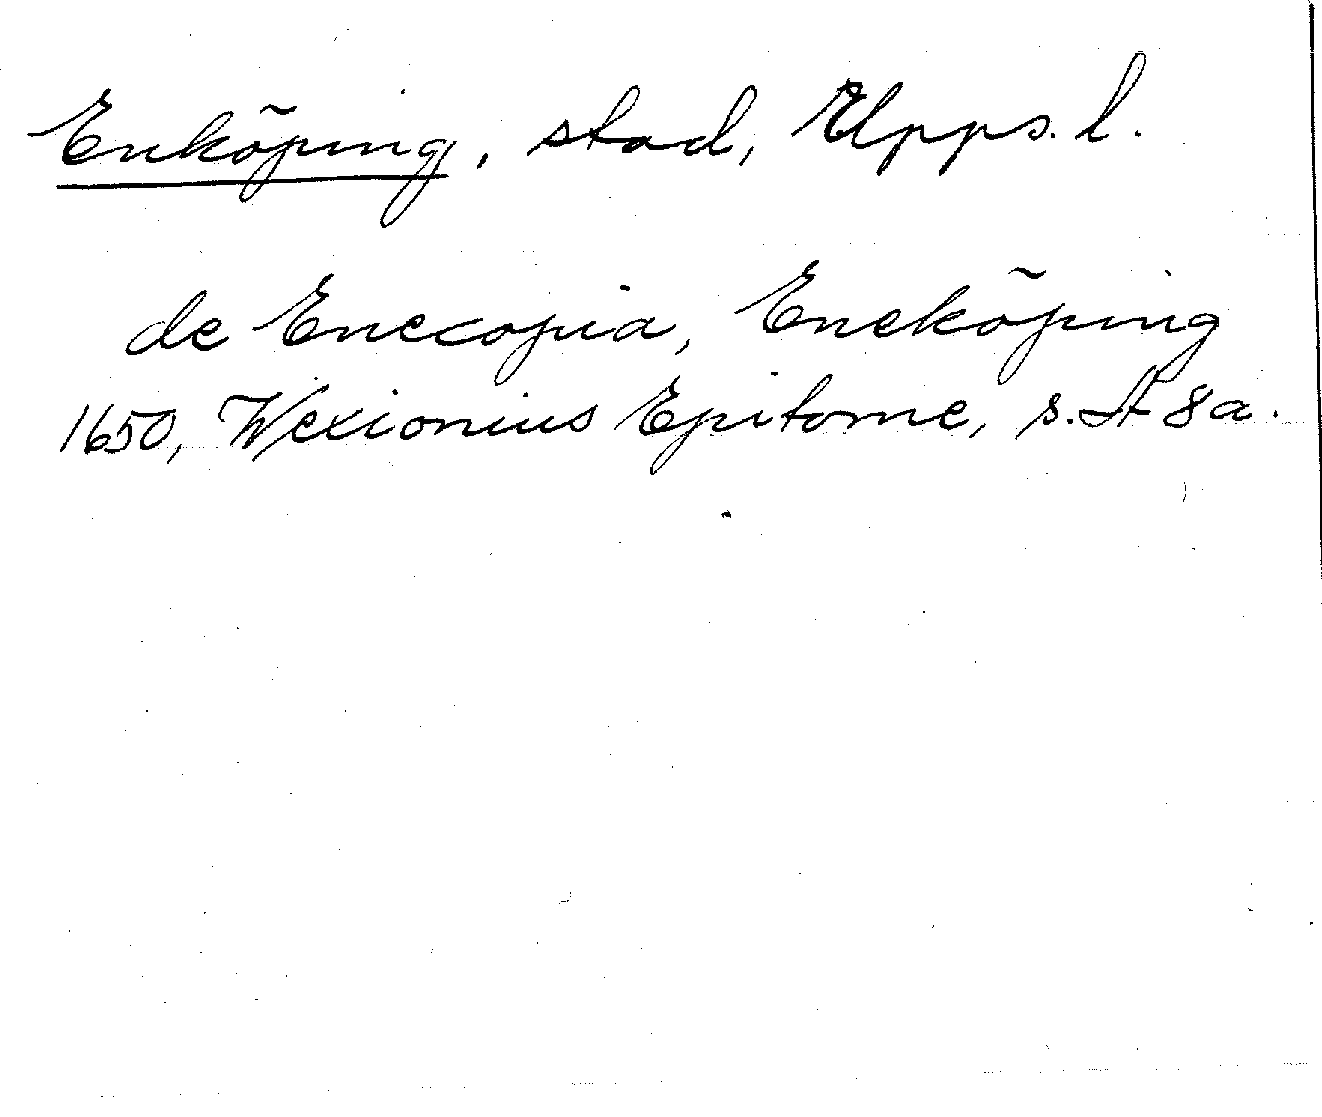 Enköping, stad, Upps. l.
de Enecopia, Eneköping
1650, Wexionius Epitome, s. A 8 a.